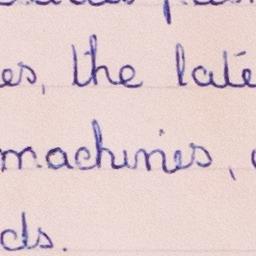 es, the late
machines,
ds.